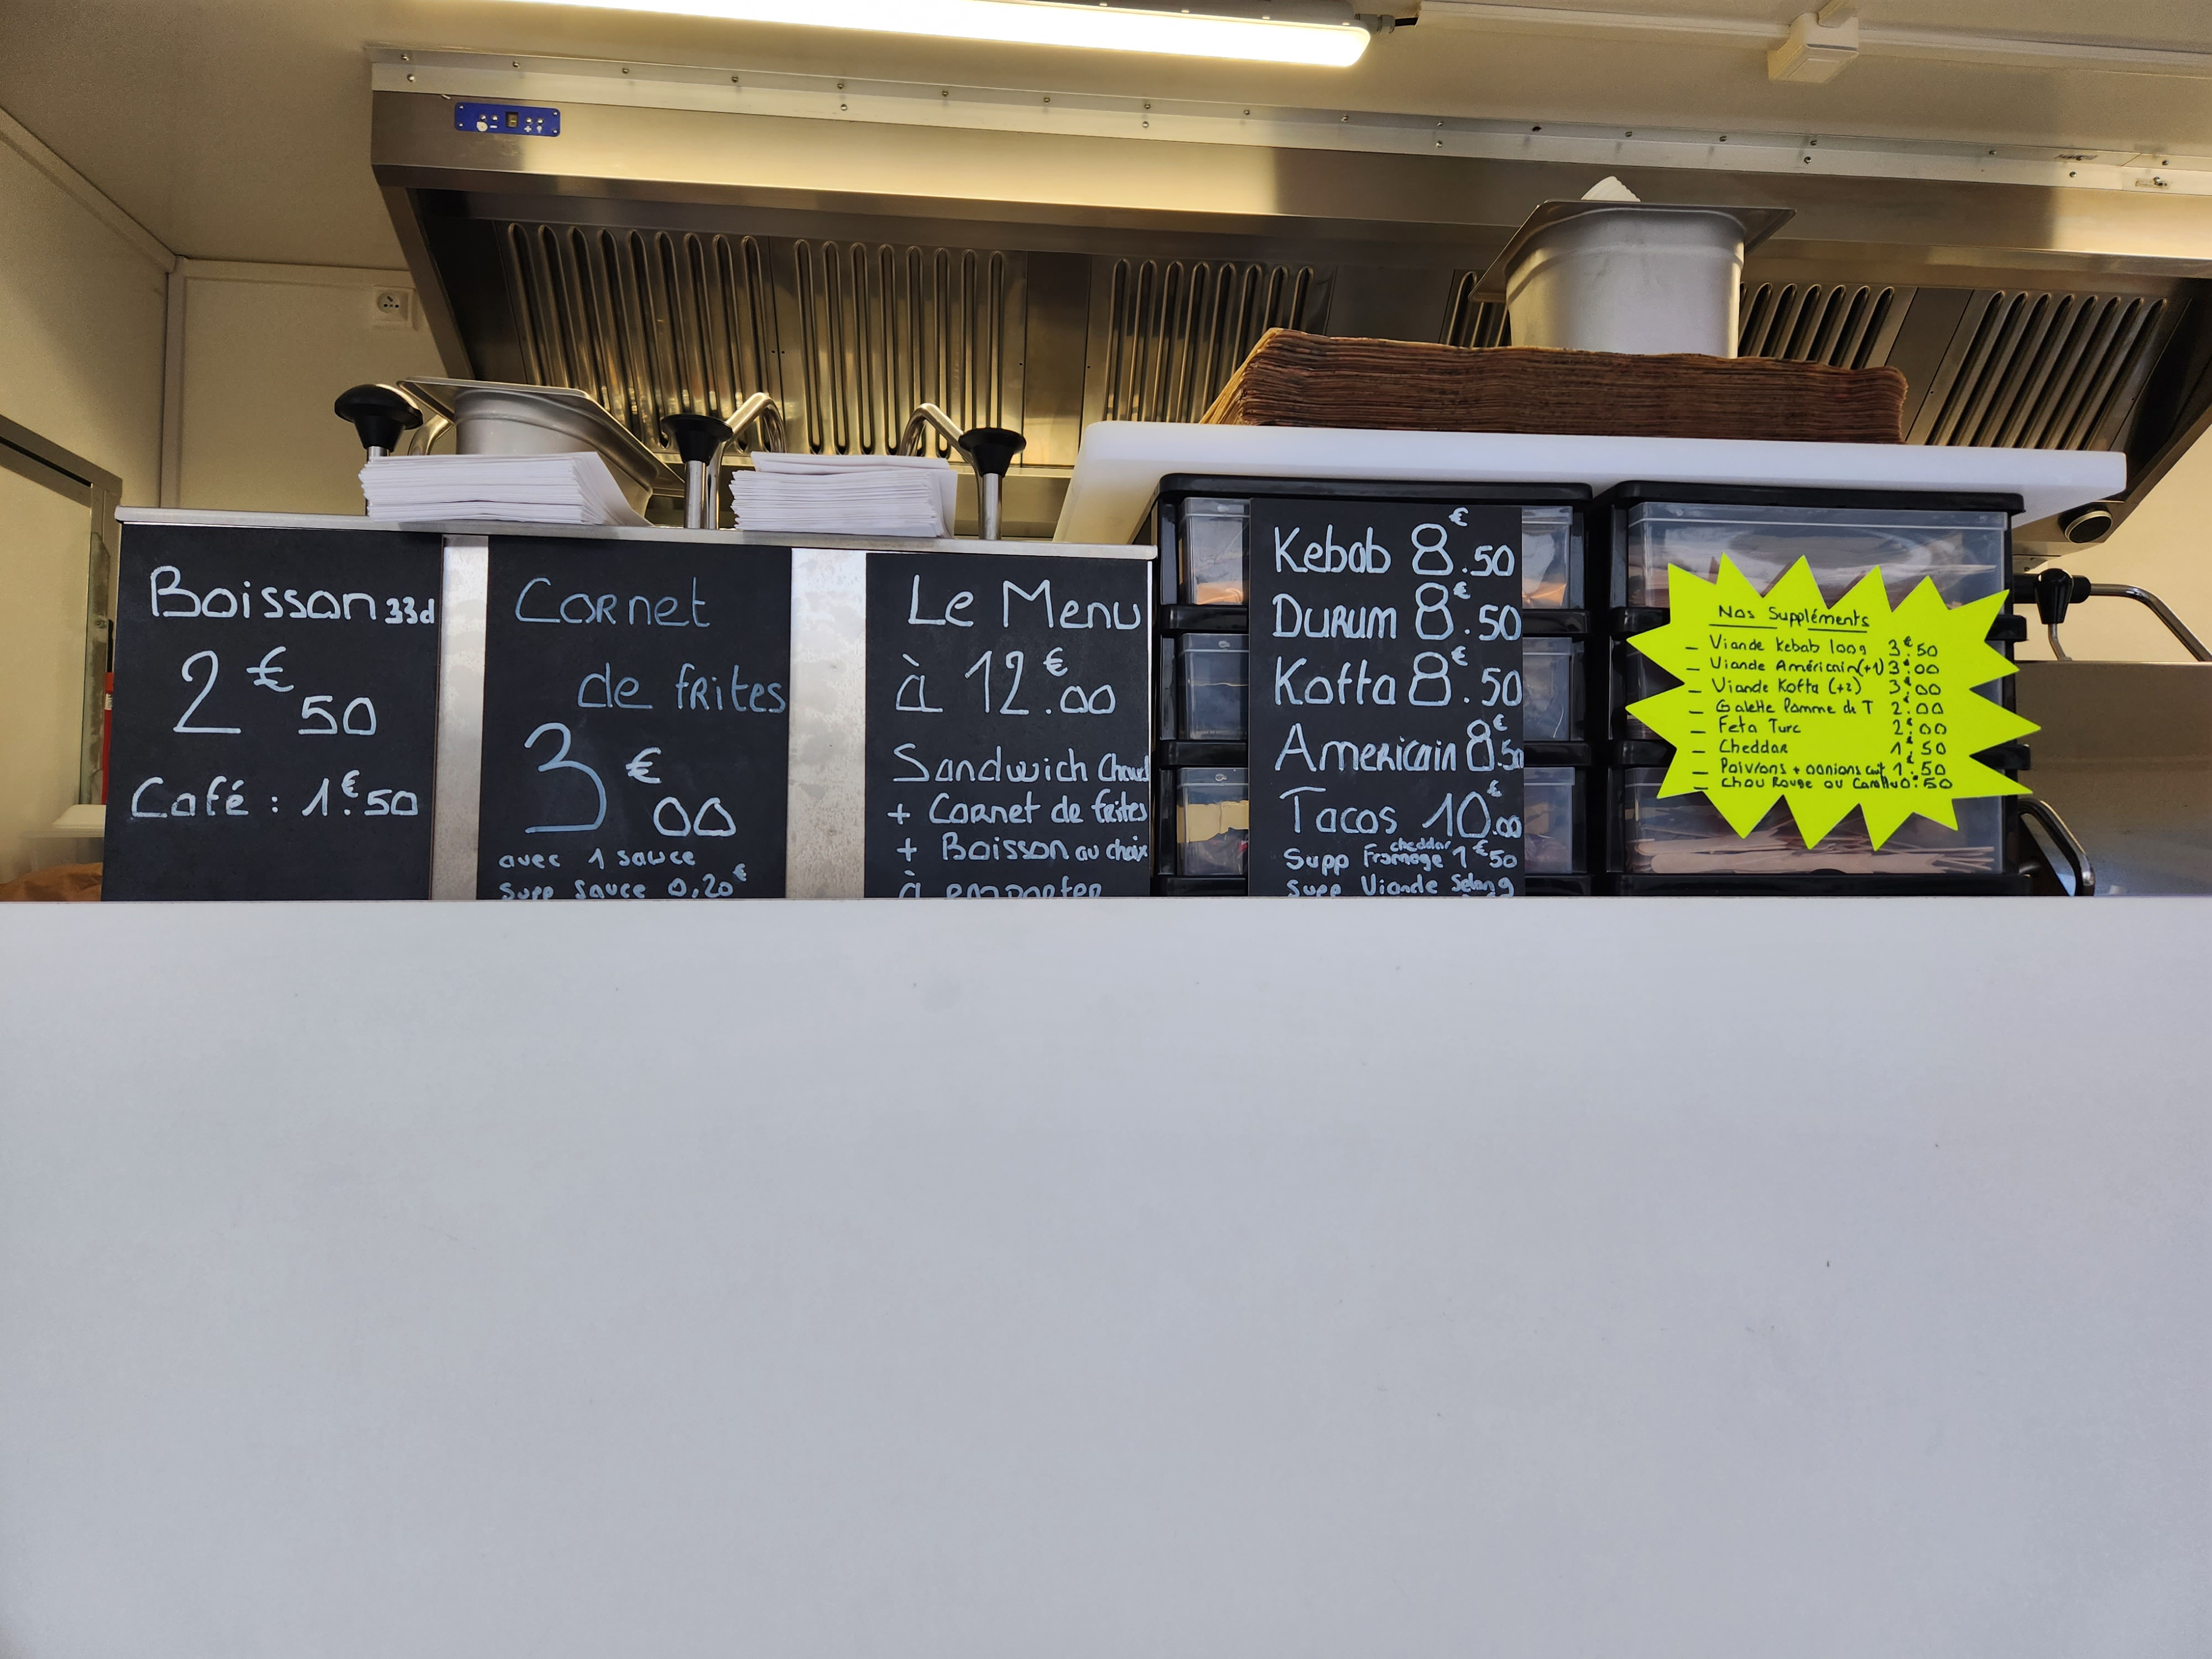 Boisson 33cl
2€50
Café : 1€.50
Cornet
de frites
3€00
avec 1 sauce
Supp sauce 0,20€
Le Menu
à 12€.00
Sandwich Chaud
+ Cornet de frites
+ Boisson au choix
à emporter
Kebab 8€.50
Durum 8€.50
Kofta 8€.50
Americain 8€.50
Tacos 10€.00
cheddar
Supp Fromage 1€50
Supp Viande Selon
Nos Suppléments
- Viande Kebab 100g 3€.50
- Viande Américain (+1) 3€.00
- Viande Kofta (+2) 3€.00
- Galette Pomme de T 2€.00
- Feta Turc 2€.00
- Cheddar 1€.50
- Poivrons + oonions cuit 1€.50
- Chou Rouge ou 0€.50